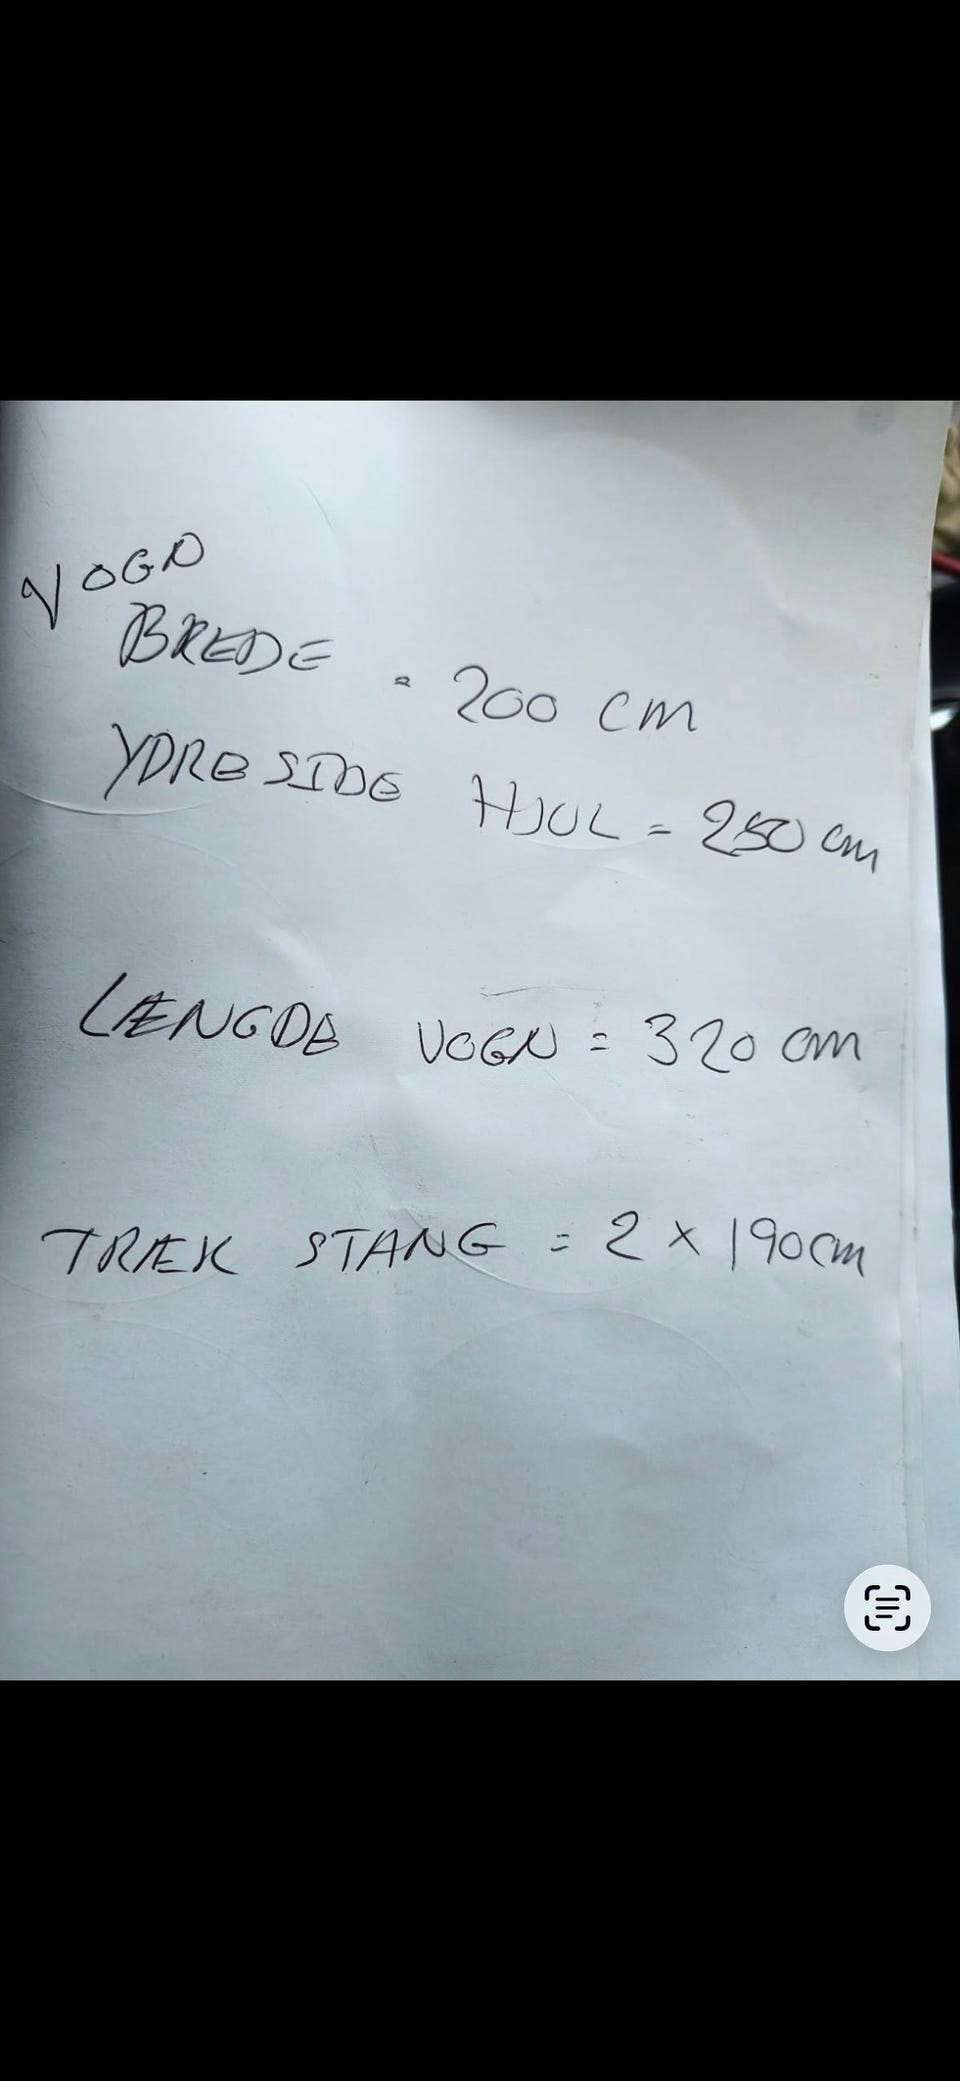 VOGN
BREDE = 200 cm
YDRE SIDE HJUL = 250 cm
LÆNGDE VOGN = 320 cm
TRÆK STANG = 2 x 190 cm